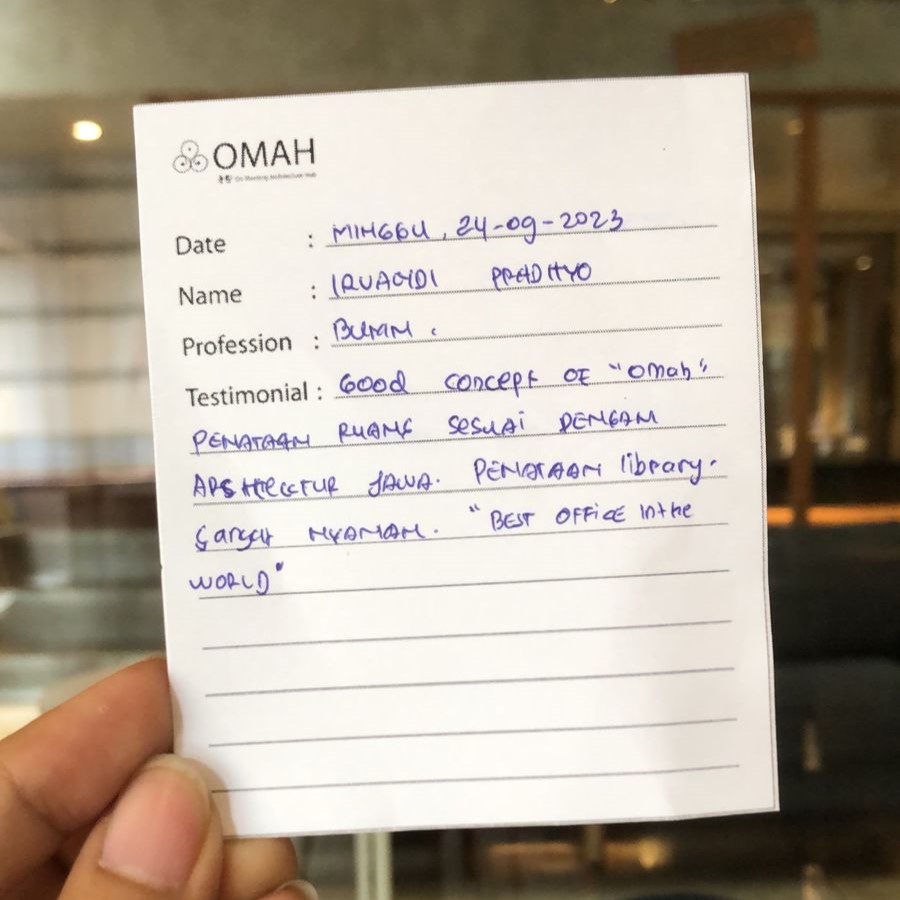 OMAH
Date : MINGGU, 24-09-2023
Name : PRADHYO
Profession : BUMN.
Testimonial : GOOD CONCEPT OF "OMAH"
PENATAAN RUANG SESUAI DENGAN
JAWA. PENATAAN library.
NYAMAN. "BEST OFFICE IN the
WORLD"